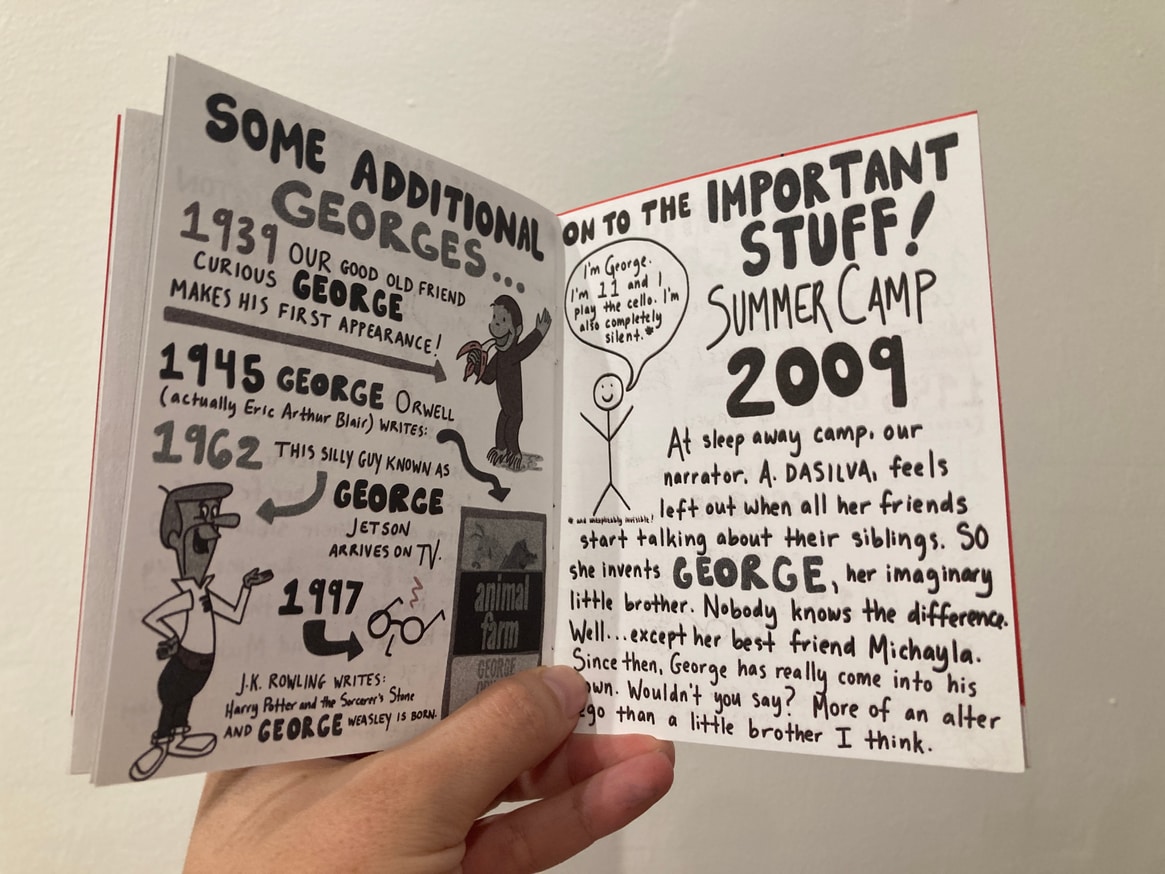 SOME ADDITIONAL
GEORGES...
1939 OUR GOOD OLD FRIEND
CURIOUS GEORGE
MAKES HIS FIRST APPEARANCE!
1945 GEORGE ORWELL
(actually Eric Arthur Blair) WRITES:
1962 THIS SILLY GUY KNOWN AS
GEORGE
JETSON
ARRIVES ON TV.
1997
animal
farm
GEORGE
J.K. ROWLING WRITES:
Harry Potter and the Sorcerer's Stone
AND GEORGE WEASLEY IS BORN.
ON TO THE IMPORTANT
STUFF!
I'm George.
I'm 11 and I
play the cello. I'm
also completely
silent.*
SUMMER CAMP
2009
At sleep away camp, our
narrator, A. DASILVA, feels
* and inexplicably invisible!
left out when all her friends
start talking about their siblings. SO
she invents GEORGE, her imaginary
little brother. Nobody knows the difference.
Well... except her best friend Michayla.
Since then, George has really come into his
own. Wouldn't you say? More of an alter
ego than a little brother I think.